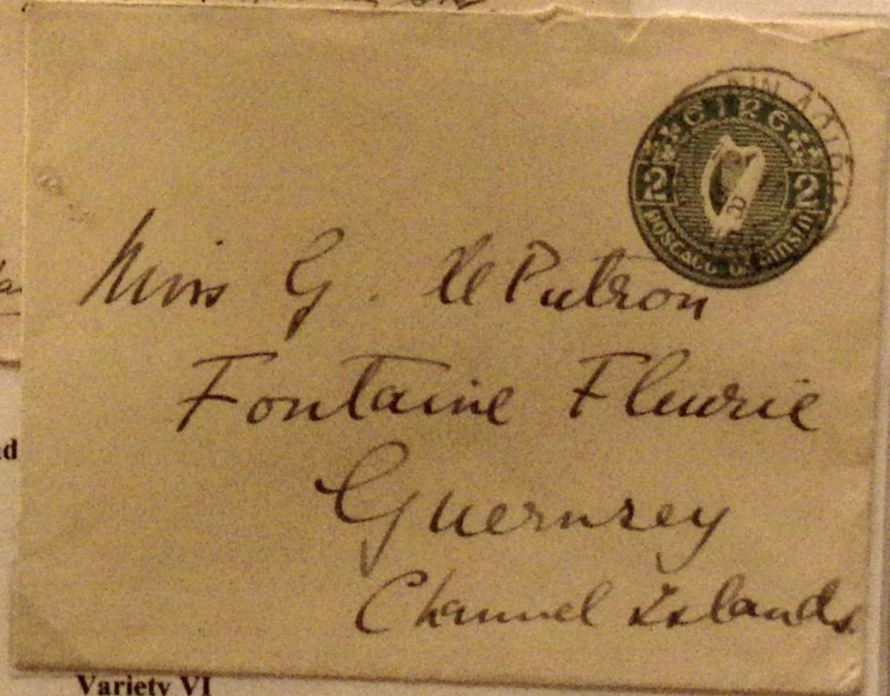 EIRE
2 2
Miss G. le Putron
Fontaine Fleurie
Guernsey
Channel Islands
Variety VI